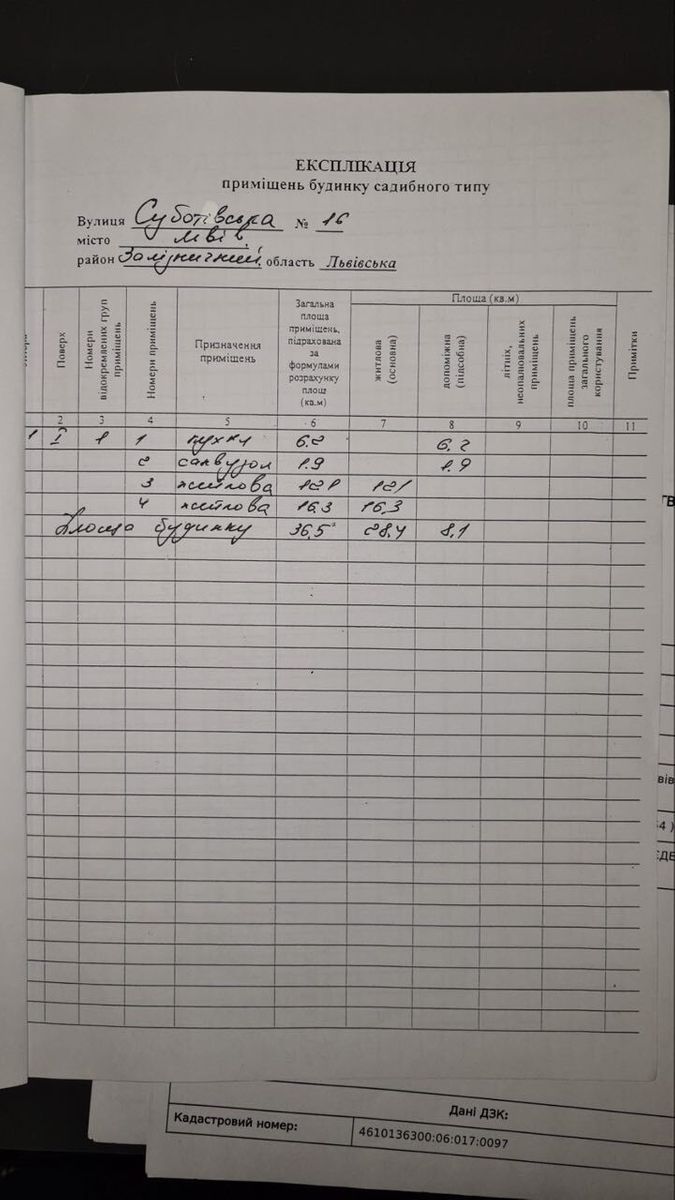 ЕКСПЛІКАЦІЯ
приміщень будинку садибного типу
Вулиця Суботівська № 16
місто Львів,
район Залізничний, область Львівська
Поверх
Номери відокремлених груп приміщень
Номери приміщень
Призначення приміщень
Загальна площа приміщень, підрахована за формулами розрахунку площ (кв.м)
Площа (кв.м)
житлова (основна)
допоміжна (підсобна)
літніх, неопалювальних приміщень
площа приміщень загального користування
Примітки
2 3 4 5 6 7 8 9 10 11
1 I 1 1 кухня 6.2 6.2
2 санвузол 1.9 1.9
3 житлова 12 1 12 1
4 житлова 16.3 16,3
Площа будинку 36,5 28,4 8,1
ТВ
вів
54 )
ЄДЕ
Дані ДЗК:
Кадастровий номер: 4610136300:06:017:0097